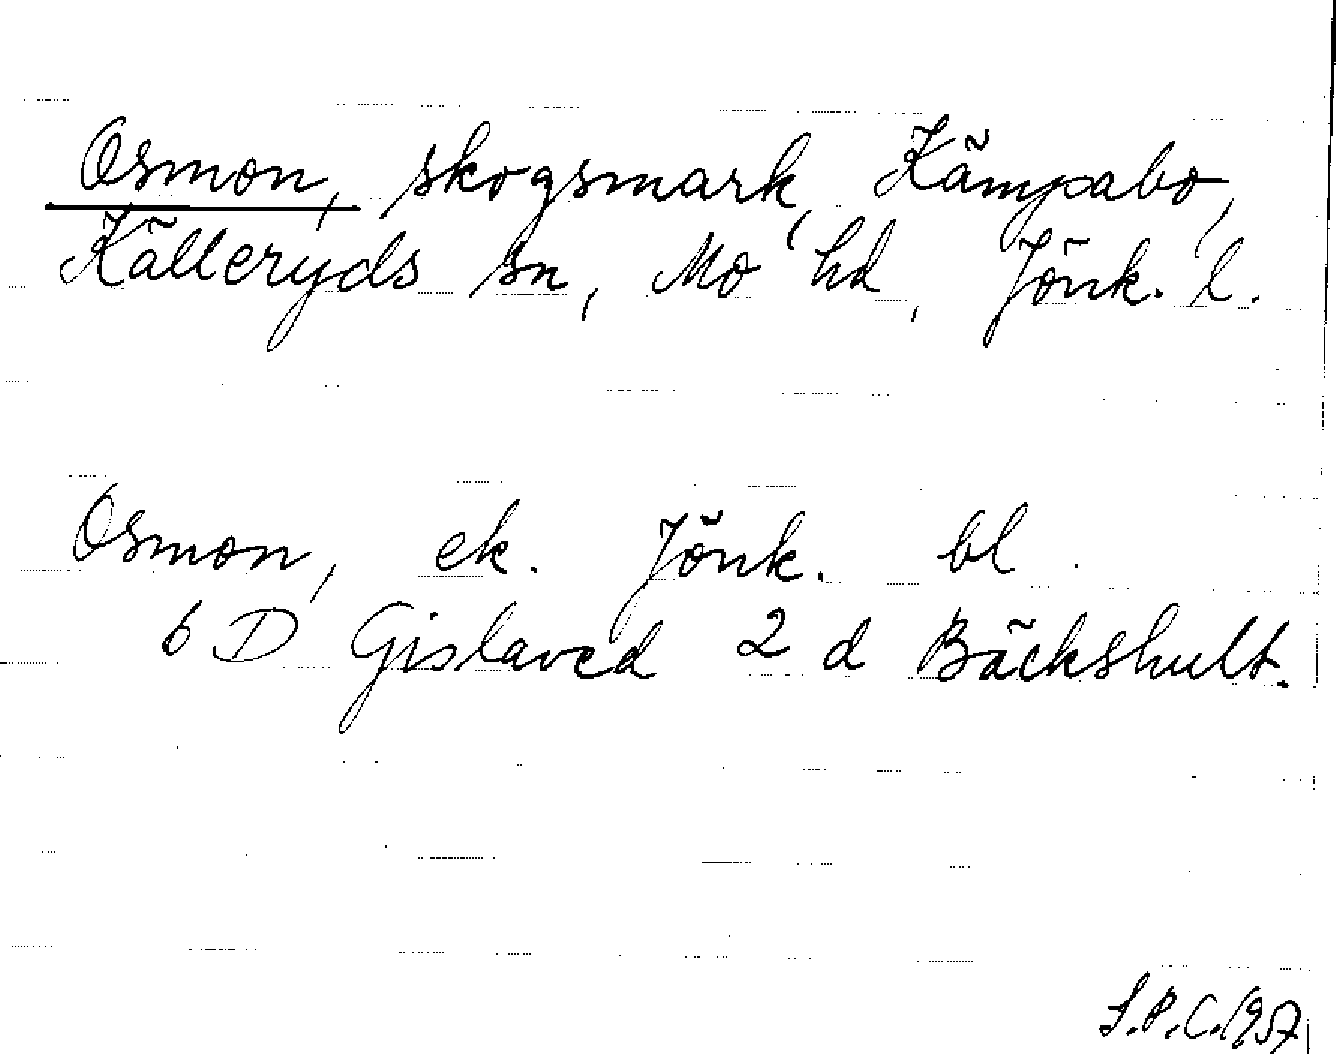 Osmon, skogsmark, Kämpabo,
Källeryds sn, Mo hd, Jönk. l.
Osmon, ek. Jönk. bl.
6 D Gislaved 2 d Bäckshult.
S.P.C. 1957